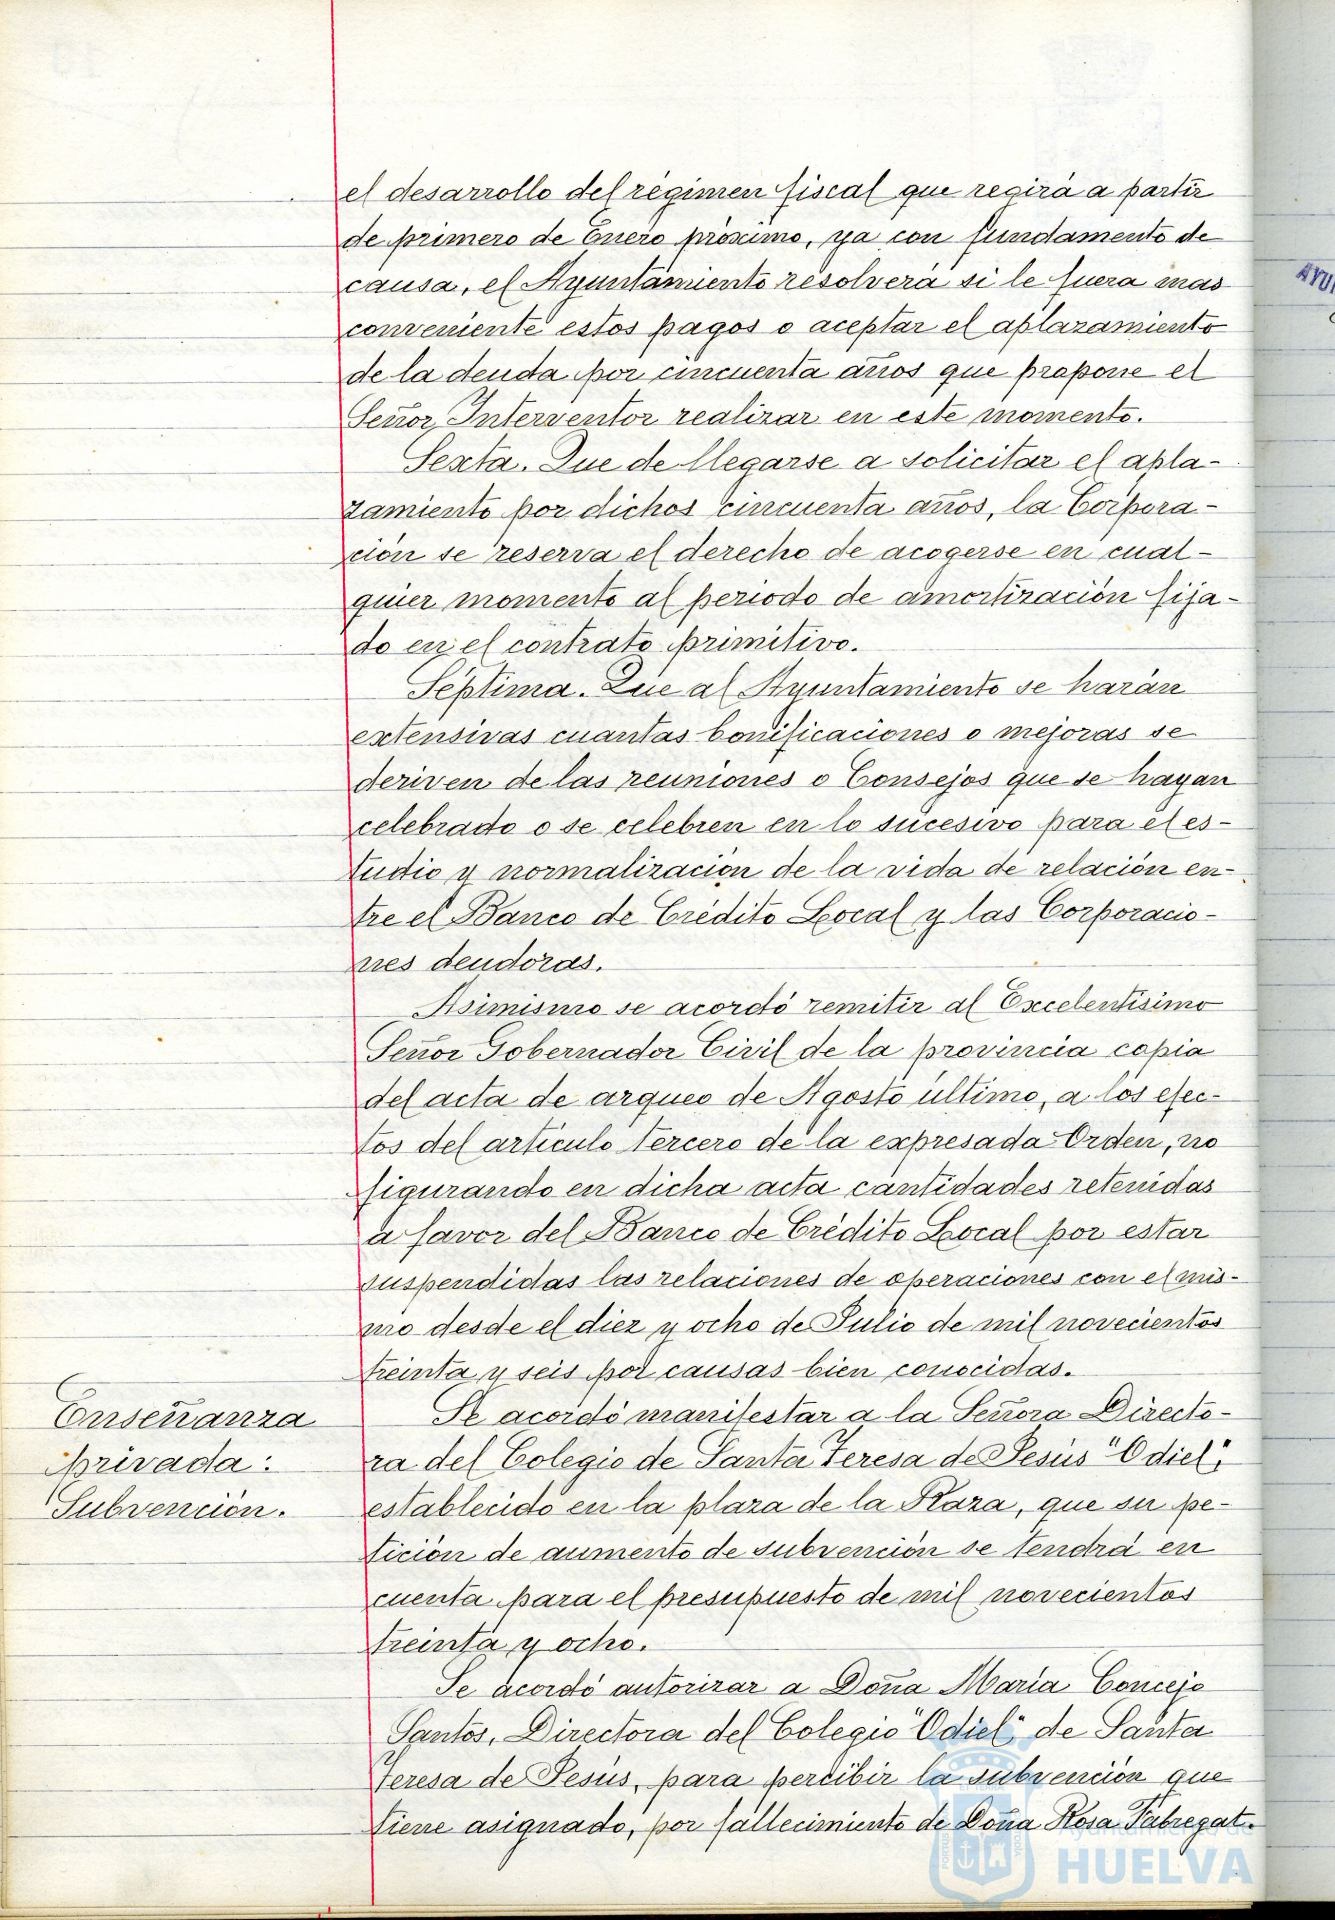 el desarrollo del régimen fiscal que regirá a partir
de primero de Enero próximo, ya con fundamento de
causa, el Ayuntamiento resolverá si le fuera mas
conveniente estos pagos o aceptar el aplazamiento
de la deuda por cincuenta años que propone el
Señor Interventor realizar en este momento.
Sexta. Que de llegarse a solicitar el apla-
zamiento por dichos cincuenta años, la Corpora-
ción se reserva el derecho de acogerse en cual-
quier momento al periodo de amortización fija-
do en el contrato primitivo.
Séptima. Que al Ayuntamiento se harán
extensivas cuantas bonificaciones o mejoras se
deriven de las reuniones o Consejos que se hayan
celebrado o se celebren en lo sucesivo para el es-
tudio y normalización de la vida de relación en-
tre el Banco de Crédito Local y las Corporacio-
nes deudoras.
Asimismo se acordó remitir al Excelentísimo
Señor Gobernador Civil de la provincia copia
del acta de arqueo de Agosto último, a los efec-
tos del artículo tercero de la expresada Orden, no
figurando en dicha acta cantidades retenidas
a favor del Banco de Crédito Local por estar
suspendidas las relaciones de operaciones con el mis-
mo desde el diez y ocho de Julio de mil novecientos
treinta y seis por causas bien conocidas.
Enseñanza
privada:
Subvención.
Se acordó manifestar a la Señora Directo-
ra del Colegio de Santa Teresa de Jesús "Odiel",
establecido en la plaza de la Plaza, que su pe-
tición de aumento de subvención se tendrá en
cuenta para el presupuesto de mil novecientos
treinta y ocho.
Se acordó autorizar a Doña María Concejo
Santos, Directora del Colegio "Odiel" de Santa
Teresa de Jesús, para percibir la subvención que
tiene asignado, por fallecimiento de Doña Rosa Fabregat.
Ayuntamiento de
HUELVA
AYU